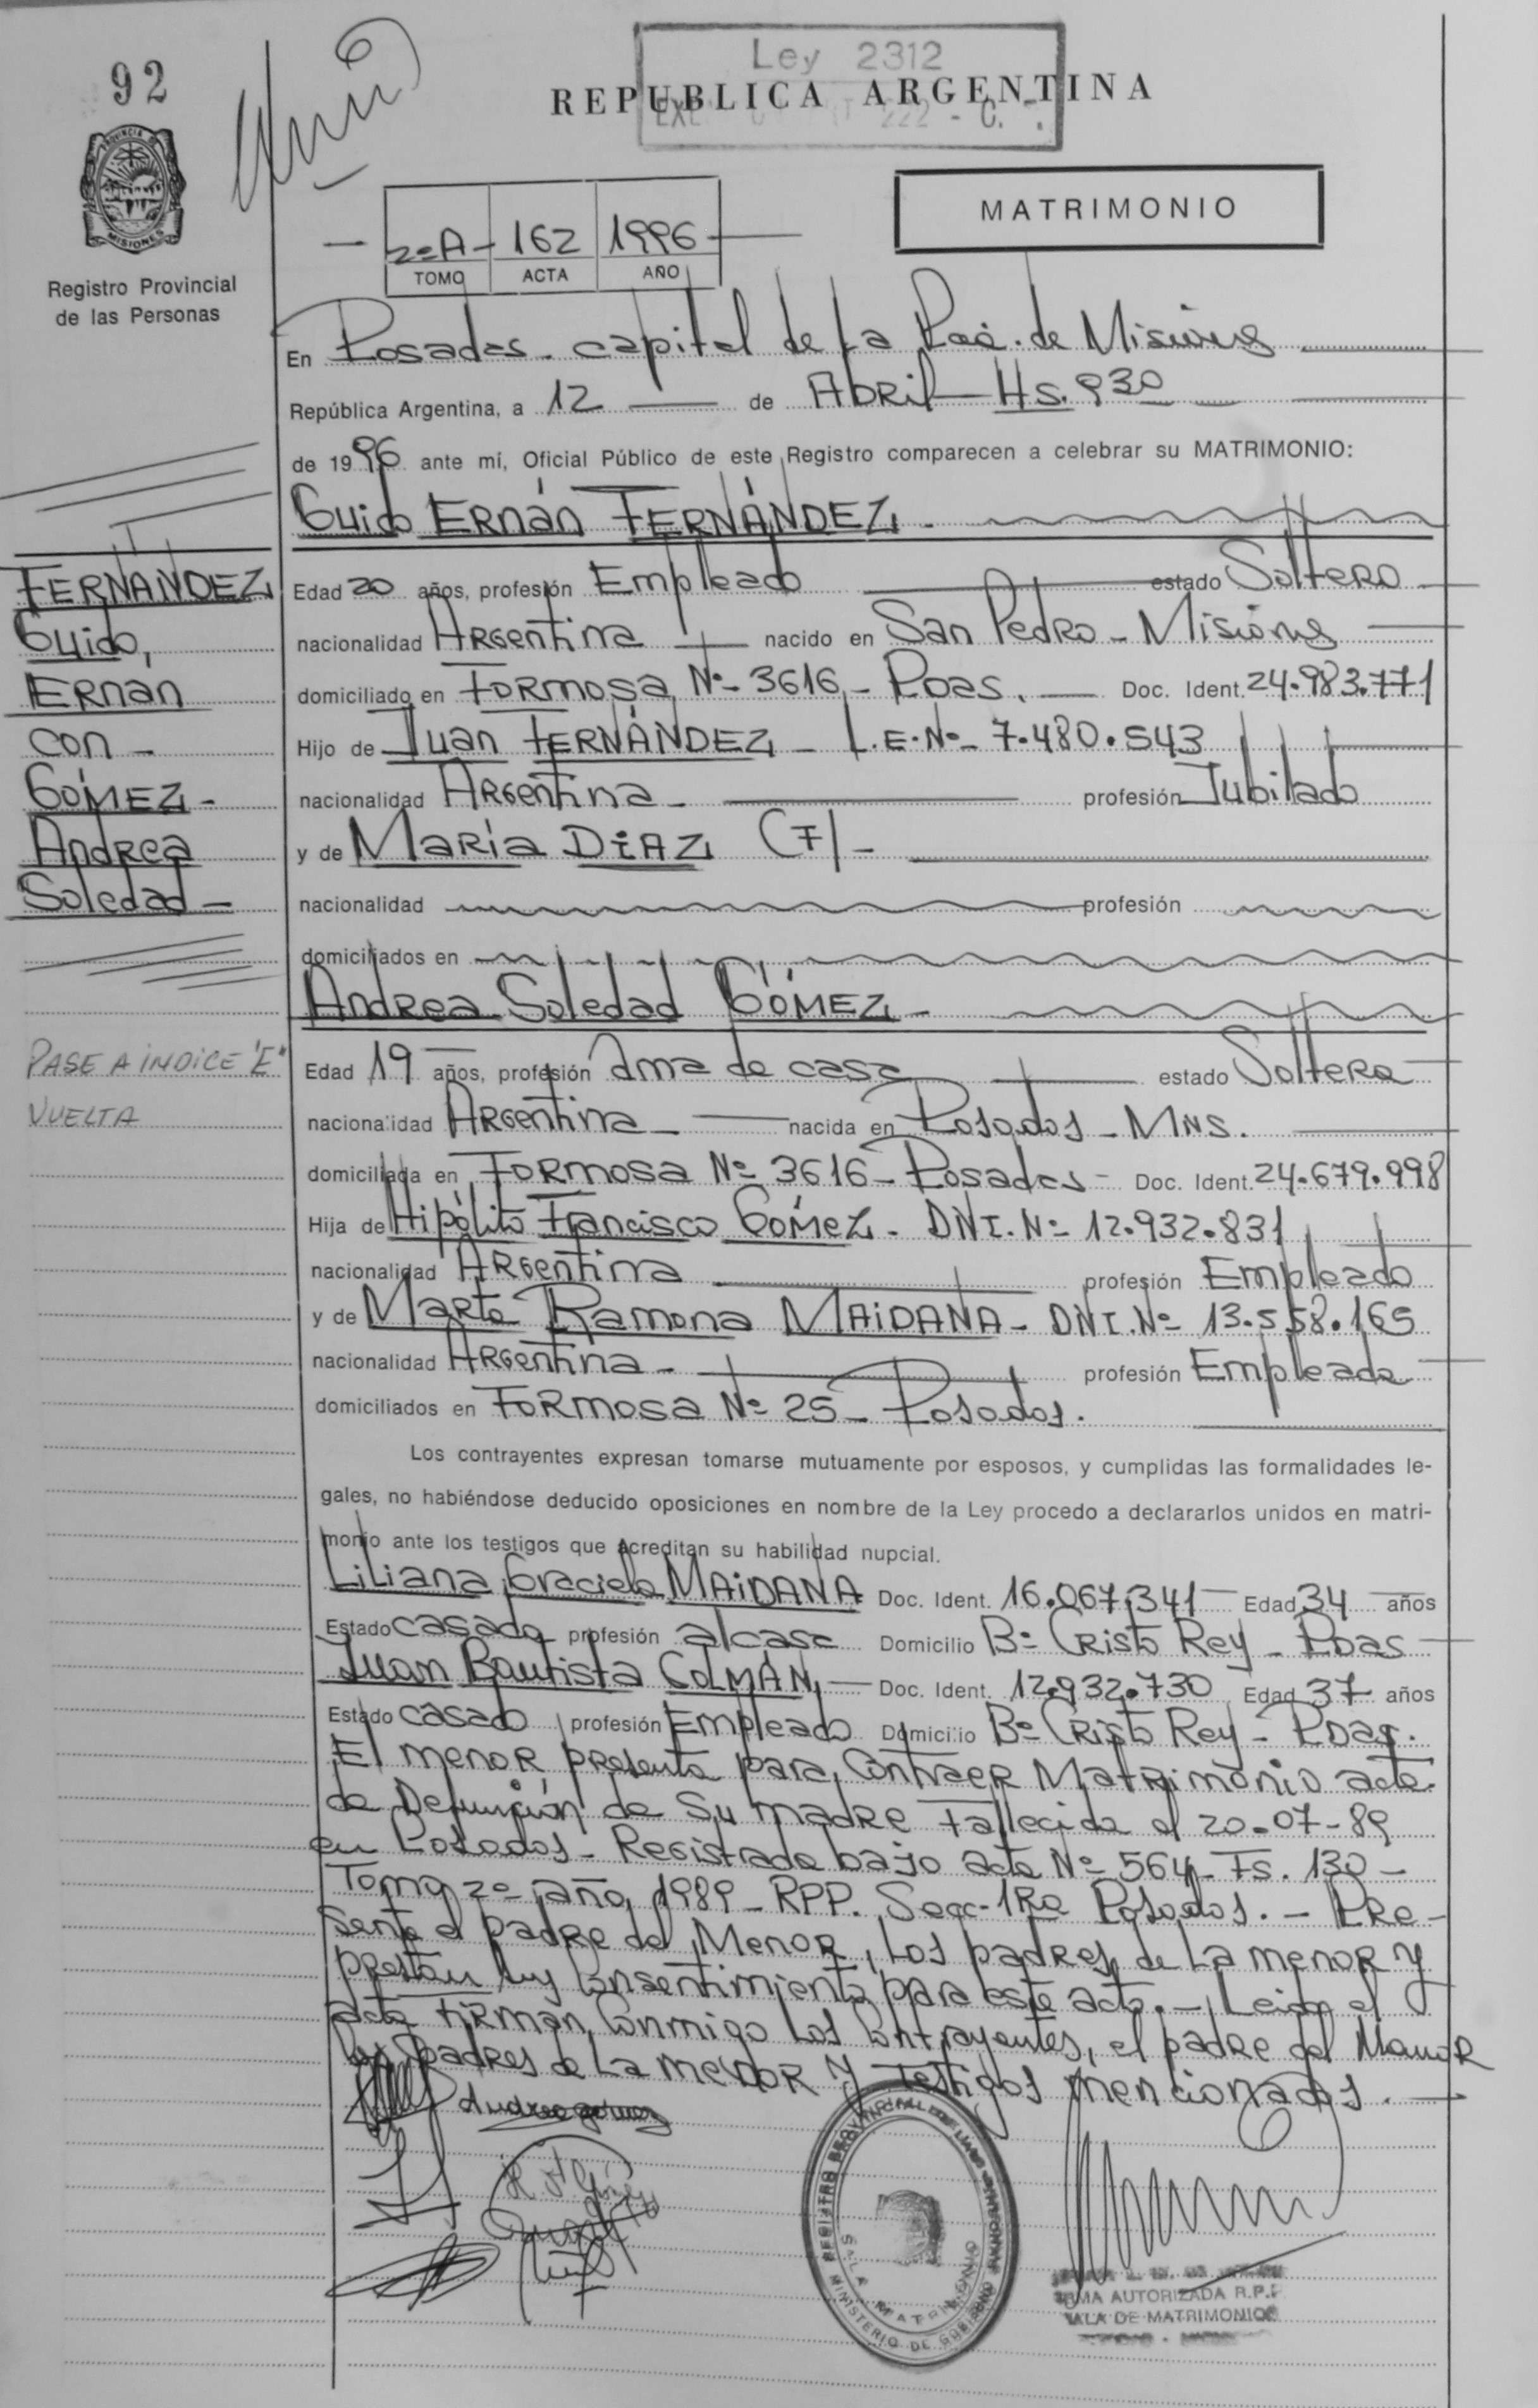 92
Ley 2312
REPUBLICA ARGENTINA
222 - C.
PROVINCIA DE
MISIONES
Registro Provincial
de las Personas
MATRIMONIO
2º A - 162 1996
TOMO ACTA AÑO
En Posadas - capital de la Pcia. de Misiones
República Argentina, a 12 de Abril - Hs. 930
de 1996 ante mí, Oficial Público de este Registro comparecen a celebrar su MATRIMONIO:
Guido Ernán FERNÁNDEZ -
FERNANDEZ
Guido,
Ernan
con -
GÓMEZ -
Andrea
Soledad -
Edad 20 años, profesión Empleado estado Soltero
nacionalidad Argentina nacido en San Pedro - Misiones
domiciliado en Formosa Nº - 3616 - Pdas. Doc. Ident. 24.983.771
Hijo de Juan FERNÁNDEZ - L.E. Nº - 7.480.543
nacionalidad Argentina - profesión Jubilado
y de María DiAZ (F) -
nacionalidad profesión
domiciliados en
Andrea Soledad GÓMEZ -
PASE A INDICE "E"
VUELTA
Edad 19 años, profesión Ama de casa estado Soltera
nacionalidad Argentina - nacida en Posadas - Mns.
domiciliada en Formosa Nº 3616 - Posadas - Doc. Ident. 24.679.998
Hija de Hipólito Francisco GómeZ - DNI. Nº 12.932.831
nacionalidad Argentina profesión Empleado
y de Marta Ramona MAiDANA - DNI. Nº 13.558.165
nacionalidad Argentina - profesión Empleada
domiciliados en Formosa Nº 25 - Posadas.
Los contrayentes expresan tomarse mutuamente por esposos, y cumplidas las formalidades le-
gales, no habiéndose deducido oposiciones en nombre de la Ley procedo a declararlos unidos en matri-
monio ante los testigos que acreditan su habilidad nupcial.
Liliana Graciela MAiDANA Doc. Ident. 16.067.341 Edad 34 años
Estado casada profesión a/casa Domicilio Bº Cristo Rey - Pdas
Juan Bautista COLMÁN, Doc. Ident. 12.932.730 Edad 37 años
Estado casado profesión Empleado Domicilio Bº Cristo Rey - Pdas.
El menor presenta para Contraer Matrimonio acta
de Defunción de su madre Fallecida el 20-07-89
en Posadas - Registrada bajo acta Nº 564 - Fs. 130 -
Tomo 2º - año 1989 - RPP. Secc - 1Ra Posadas. - Pre-
sente el padre del Menor, Los padres de La menor y
prestan su Consentimiento para este acto. - Leida el
acta firman Conmigo Los Contrayentes, el padre del Menor
los padres de La menor y testigos mencionados. -
Andrea gomez
REGISTRO PROVINCIAL DE LAS PERSONAS
SALA MATRIMONIO
MINISTERIO DE GOBIERNO
FIRMA AUTORIZADA R.P.P.
SALA DE MATRIMONIOS